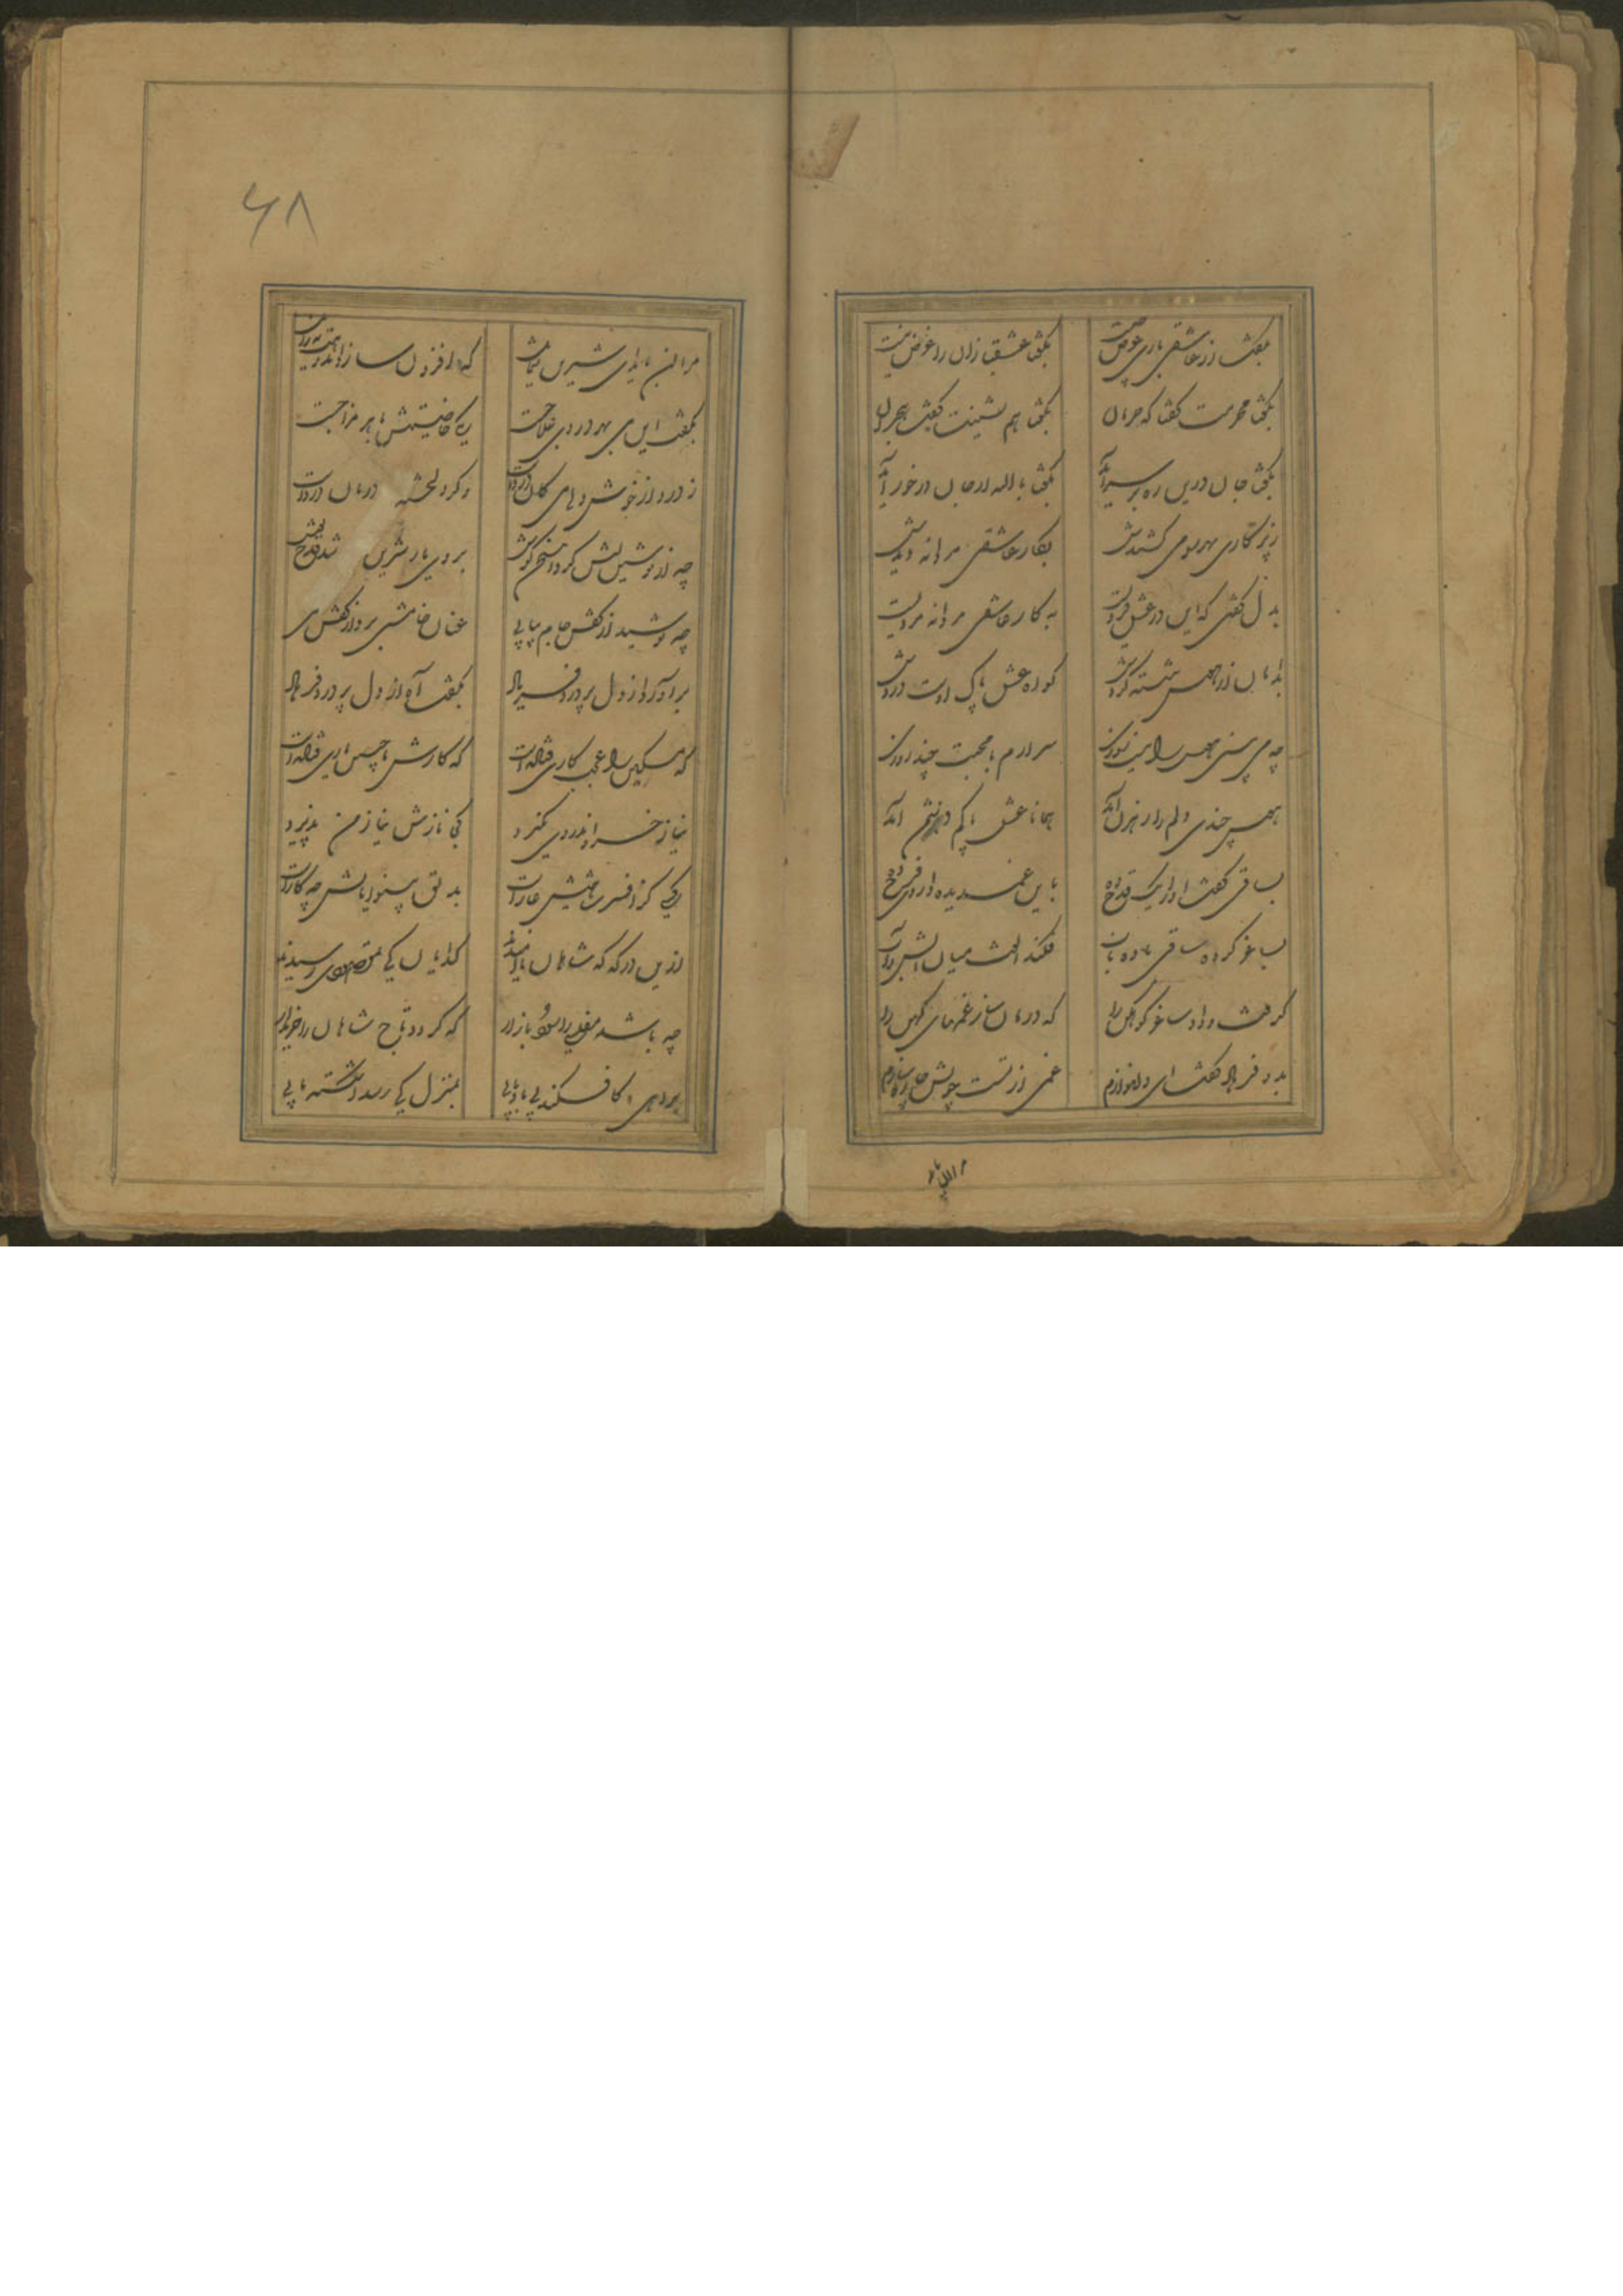 بگفت از عاشقی باری عوض چیست بگفتا عشقبازان را غرض نیست
بگفتا محرمت گفتا که حرمان بگفتا هم نشینت گفت هجران
بگفتا جان درین ره بر سر آید بگفتا با الله ار جان در خور آید
ز پرگاری بهر سو می کشیدش بکار عاشقی مردانه دیدش
بدل گفتی که این در عشق فردست به کار عاشقی مردانه مردست
بدامان از هوس ننشسته گردش گواه عشق پاک اوست دردش
چه می بینی هوس را نیست سوزی سرآرم با محبت چند روزی
هوس چندی دلم را رهزن آمد همانا عشق پاکم دشمن آمد
بساقی گفت او را یک قدح ده باین غمدیده داروی فرح ده
بساغر کرد ساقی باده ناب فکند الماس میان آتش و آب
گرفت و داد ساغر کوهکن را که درمان ساز غمهای کهن را
بدو فرهاد گفت ای دلنوازم غمی از تست چونش چاره سازم
مرا این
۶۸
مرا این باید ای شیرین که افزون سازد
بگفت این می بهر دردی علاجست یکی خاصیتش با هر مزاجست
ز درد ار خوش دهای کان درد دگر دلخسته درمان
چه از نوشین لبش کرد این سخن گوش بروی یار شیرین شد قدح نوش
چه نوشید از کفش جام پیاپی عنان خامشی برد از کفش می
برآورد از دل پر درد فریاد بگفت آه از دل پر درد فرهاد
که مسکین را عجب کاری فتادست که کارش با چنین یاری فتادست
نیاز خسرو اندر وی نگیرد کی نازش نیاز من پذیرد
یکی کز افسر شاهیش عارست بدلق بینوایانش چه کارست
ازین درگه که شاهان ناامیدند گدایان کی بمقصودی رسیدند
چه باشد مفلسی را سود بازار که گردد تاج شاهان را خریدار
بره ی کافکند پی بادپایی بمنزل کی رسد بشکسته پایی